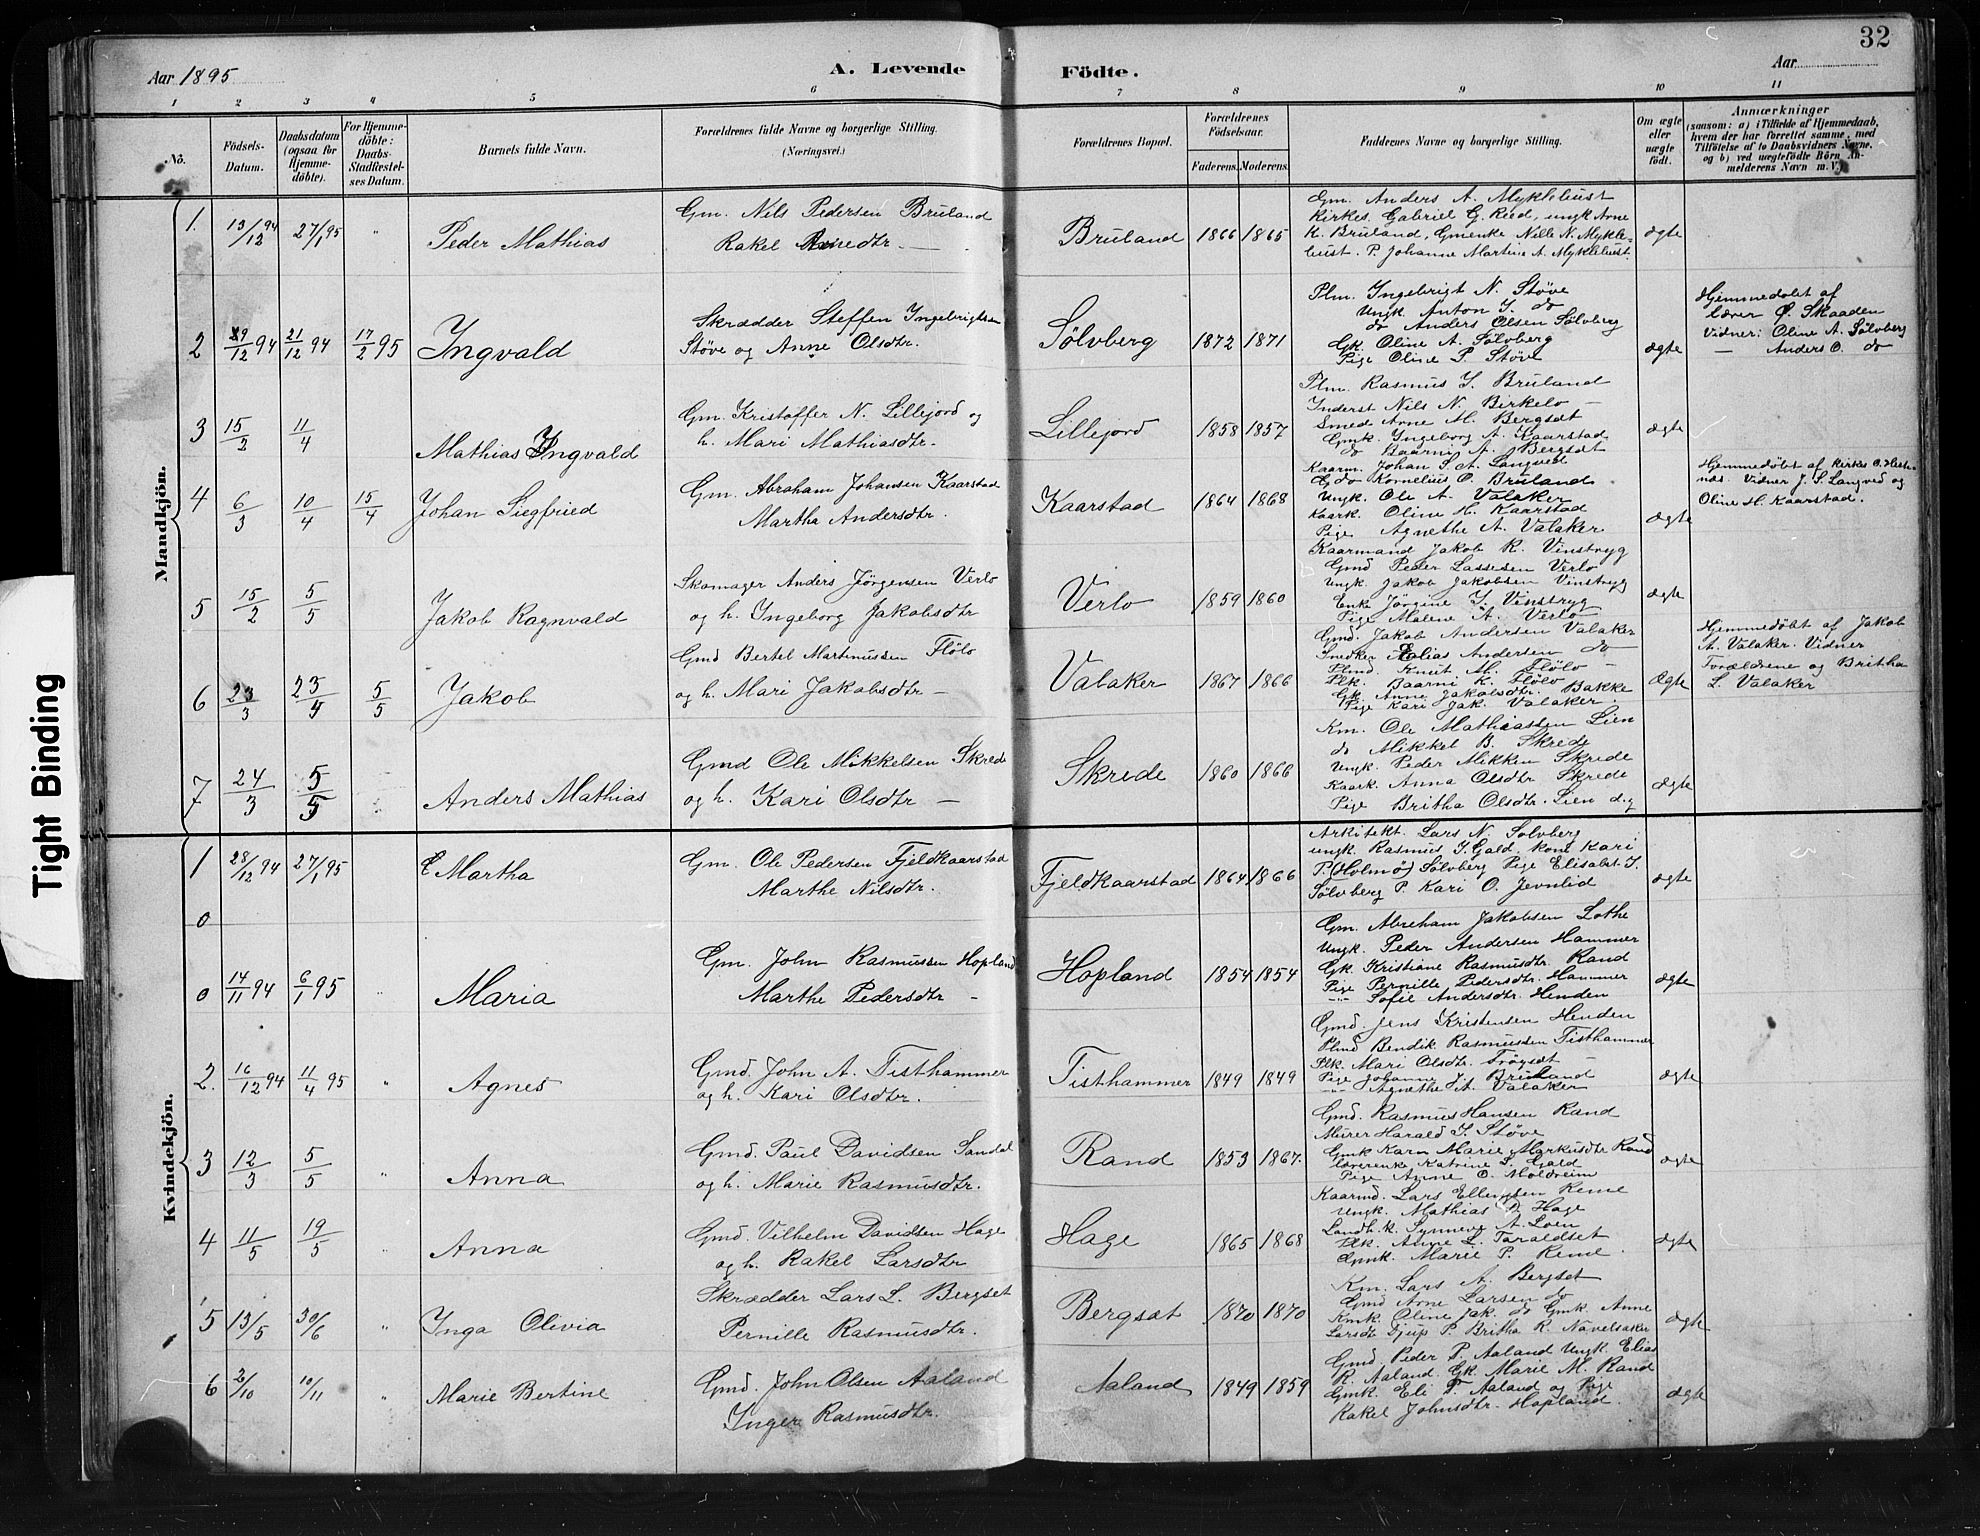 32
Aar 1895
A. Levende
Födte.
Aar
1 2 3 4 5 6 7 8 9 10 11
No.
Födsels-Datum.
Daabsdatum (ogsaa for Hjemme-döbte).
For Hjemme-döbte: Daabs-Stadfæstel-ses Datum.
Barnets fulde Navn.
Forældrenes fulde Navne og borgerlige Stilling.
(Næringsvei.)
Forældrenes Bopæl.
Forældrenes Födselsaar.
Faderens. Moderens.
Faddernes Navne og borgerlige Stilling.
Om ægte eller uægte födt.
Anmærkninger
(saasom: a) i Tilfælde af Hjemmedaab, hvem der har forrettet samme, med Tilföielse af to Daabsvidners Navne, og b) ved uægtefödte Börn An-melderens Navn m. V.)
Mandkjön.
1. 13/12 94 27/1 95 " Peder Mathias
Gm. Nils Pedersen Bruland
Rakel
Bruland 1866 1865
Gm. Anders A. Myklebust
Kirkes. Gabriel G. Reed, ungk Arne
K. Bruland, Gmenke Nille N. Mykle-
bust. P. Johanne Martine A. Myklebust.
ægte
2 29/12 94 21/12 94 17/2 95 Ingvald
Skrædder Steffen Ingebrigtsen
Støve og Anne Olsdtr.
Sölvberg 1872 1871
Plm. Ingebrigt N. Støve
Ungk Anton I. do
do Anders Olsen Sølvberg
Gk. Oline A. Sølvberg
Pige Oline P. Støve
ægte
Hjemmedøbt af
lærer Ø. Skaaden
Vidner: Oline A. Sølvberg
— Anders O. do
3 15/2 11/4 Mathias Ingvald
Gm. Kristoffer N. Lillejord og
h. Mari Mathiasdtr.
Lillejord 1858 1857
Plm. Rasmus I. Bruland
Inderst Nils N. Birkelo
Smed Arne M. Bergsæt
Gmk. Ingeborg A. Kaarstad
do Baarni A. Bergsæt
ægte
4 6/3 10/4 15/4 Johan Siegfried
Gm. Abraham Johansen Kaarstad
Martha Andersdtr.
Kaarstad 1864 1868
Kaarm. Johan S. A. Langved
G do Kornelius O. Bruland
Ungk. Ole A. Valaker
Kaark. Oline H. Kaarstad
Pige Agnethe A. Valaker
ægte
Hjemmedøbt af kirkes O. Hest-
nes. Vidner J. S. Langved og
Oline H. Kaarstad.
5 15/2 5/5 Jakob Ragnvald
Skomager Anders Jørgensen Verlo
og h. Ingeborg Jakobsdtr
Verlo 1859 1860
Kaarmand Jakob R. Vinstryg
Gmd Peder Lassesen Verlo
Ungk. Jakob Jakobsen Vinstryg
Enke Jørgine I. Vinstryg
Pige Malene A. Verlo
ægte
6 23/3 23/4 5/5 Jakob
Gmd Bertel Martinussen Flölo
og h. Mari Jakobsdtr
Valaker 1867 1866
Gmd. Jakob Andersen Valaker
Snedker Elias Andersen do
Plmd. Knut M. Flölo
Plk. Baarni K. Flölo
Gk Anne Jakobsdtr. Bakke
Pige Kari Jak. Valaker.
Ægte
Hjemmedøbt af Jakob
A. Valaker. Vidner
Forældrene og Britha
L. Valaker
7 24/3 5/5 Anders Mathias
Gmd Ole Mikkelsen Skrede
og h. Kari Olsdtr —
Skrede 1860 1866
Km. Ole Mathiassen Lien
do Mikkel B. Skrede
Ungk. Peder Mikken Skrede
Kaark. Anna Olsdtr Skrede
Pige Britha Olsdtr. Lien
ægte
Kvindekjön.
1 28/12 94 27/1 95 Martha
Gm. Ole Pedersen Fjeldkaarstad
Marthe Nilsdtr.
Fjeldkaarstad 1864 1866
Arkitekt. Lars N. Solvberg
ungk. Rasmus I. Gald, kone Kari
P. (Holmö) Sølvberg Pige Elisabet I.
Sölvberg P. Kari O. Jevnlid
ægte
0
0 14/11 94 6/1 95 " Maria
Gm. John Rasmussen Hopland
Marthe Pedersdtr
Hopland 1854 1854
Gm. Abraham Jakobsen Lothe
Ungk. Peder Andersen Hammer
Gk. Kristiane Rasmusdtr. Rand
Pige Pernille Pedersdtr. Hammer
— Sofie Andersdtr. Henden
ægte
2. 16/12 94 11/4 95 " Agnes
Gmd. John A. Tisthammer
og h. Kari Olsdtr.
Tisthammer 1849 1849
Gmd. Jens Kristensen Henden
Plmd Bendik Rasmussen Tisthammer
Plk. Mari Olsdtr. Frøysæt
Pige Johanne J. Bruland
— Agnethe A. Valaker
ægte
3 12/3 5/5 " Anna
Gmd. Paul Davidsen Sandal
og h. Marie Rasmusdtr.
Rand 1853 1867.
Gmd. Rasmus Hansen Rand
Murer Harald I. Støve
Gmk Karn Marie Markusdtr Rand
Lærerenke Katrine L. Gald
Pige Anne O. Moldreim
ægte
4 11/5 19/5 " Anna
Gmd. Vilhelm Davidsen Hage
og h. Rakel Larsdtr
Hage 1865 1868
Kaarmd. Lars Ellingsen Reme
Ungk. Mathias D. Hage
Landh.k. Synneve A. Loen
Plk. Anne L. Taraldset
Gmk. Marie P. Reme
ægte
5 13/5 30/6 " Inga Olivia
Skrædder Lars L. Bergset
Pernille Rasmusdtr.
Bergsæt 1870 1870
Km. Lars A. Bergset
Gmd Arne Larsen do
Kmk. Oline Jak. do Gmk. Anne
Larsdtr Djup P. Britha R. Navelsaker
ægte
6 2/10 10/11 " Marie Bertine
Gmd. John Olsen Aaland
Inger Rasmusdtr.
Aaland 1849 1859
Gmd Peder P. Aaland Ungk. Elias
R. Aaland Gk. Marie M. Rand
Gmk. Eli P. Aaland og Pige
Rakel Johnsdtr. Hopland.
ægte
Tight Binding